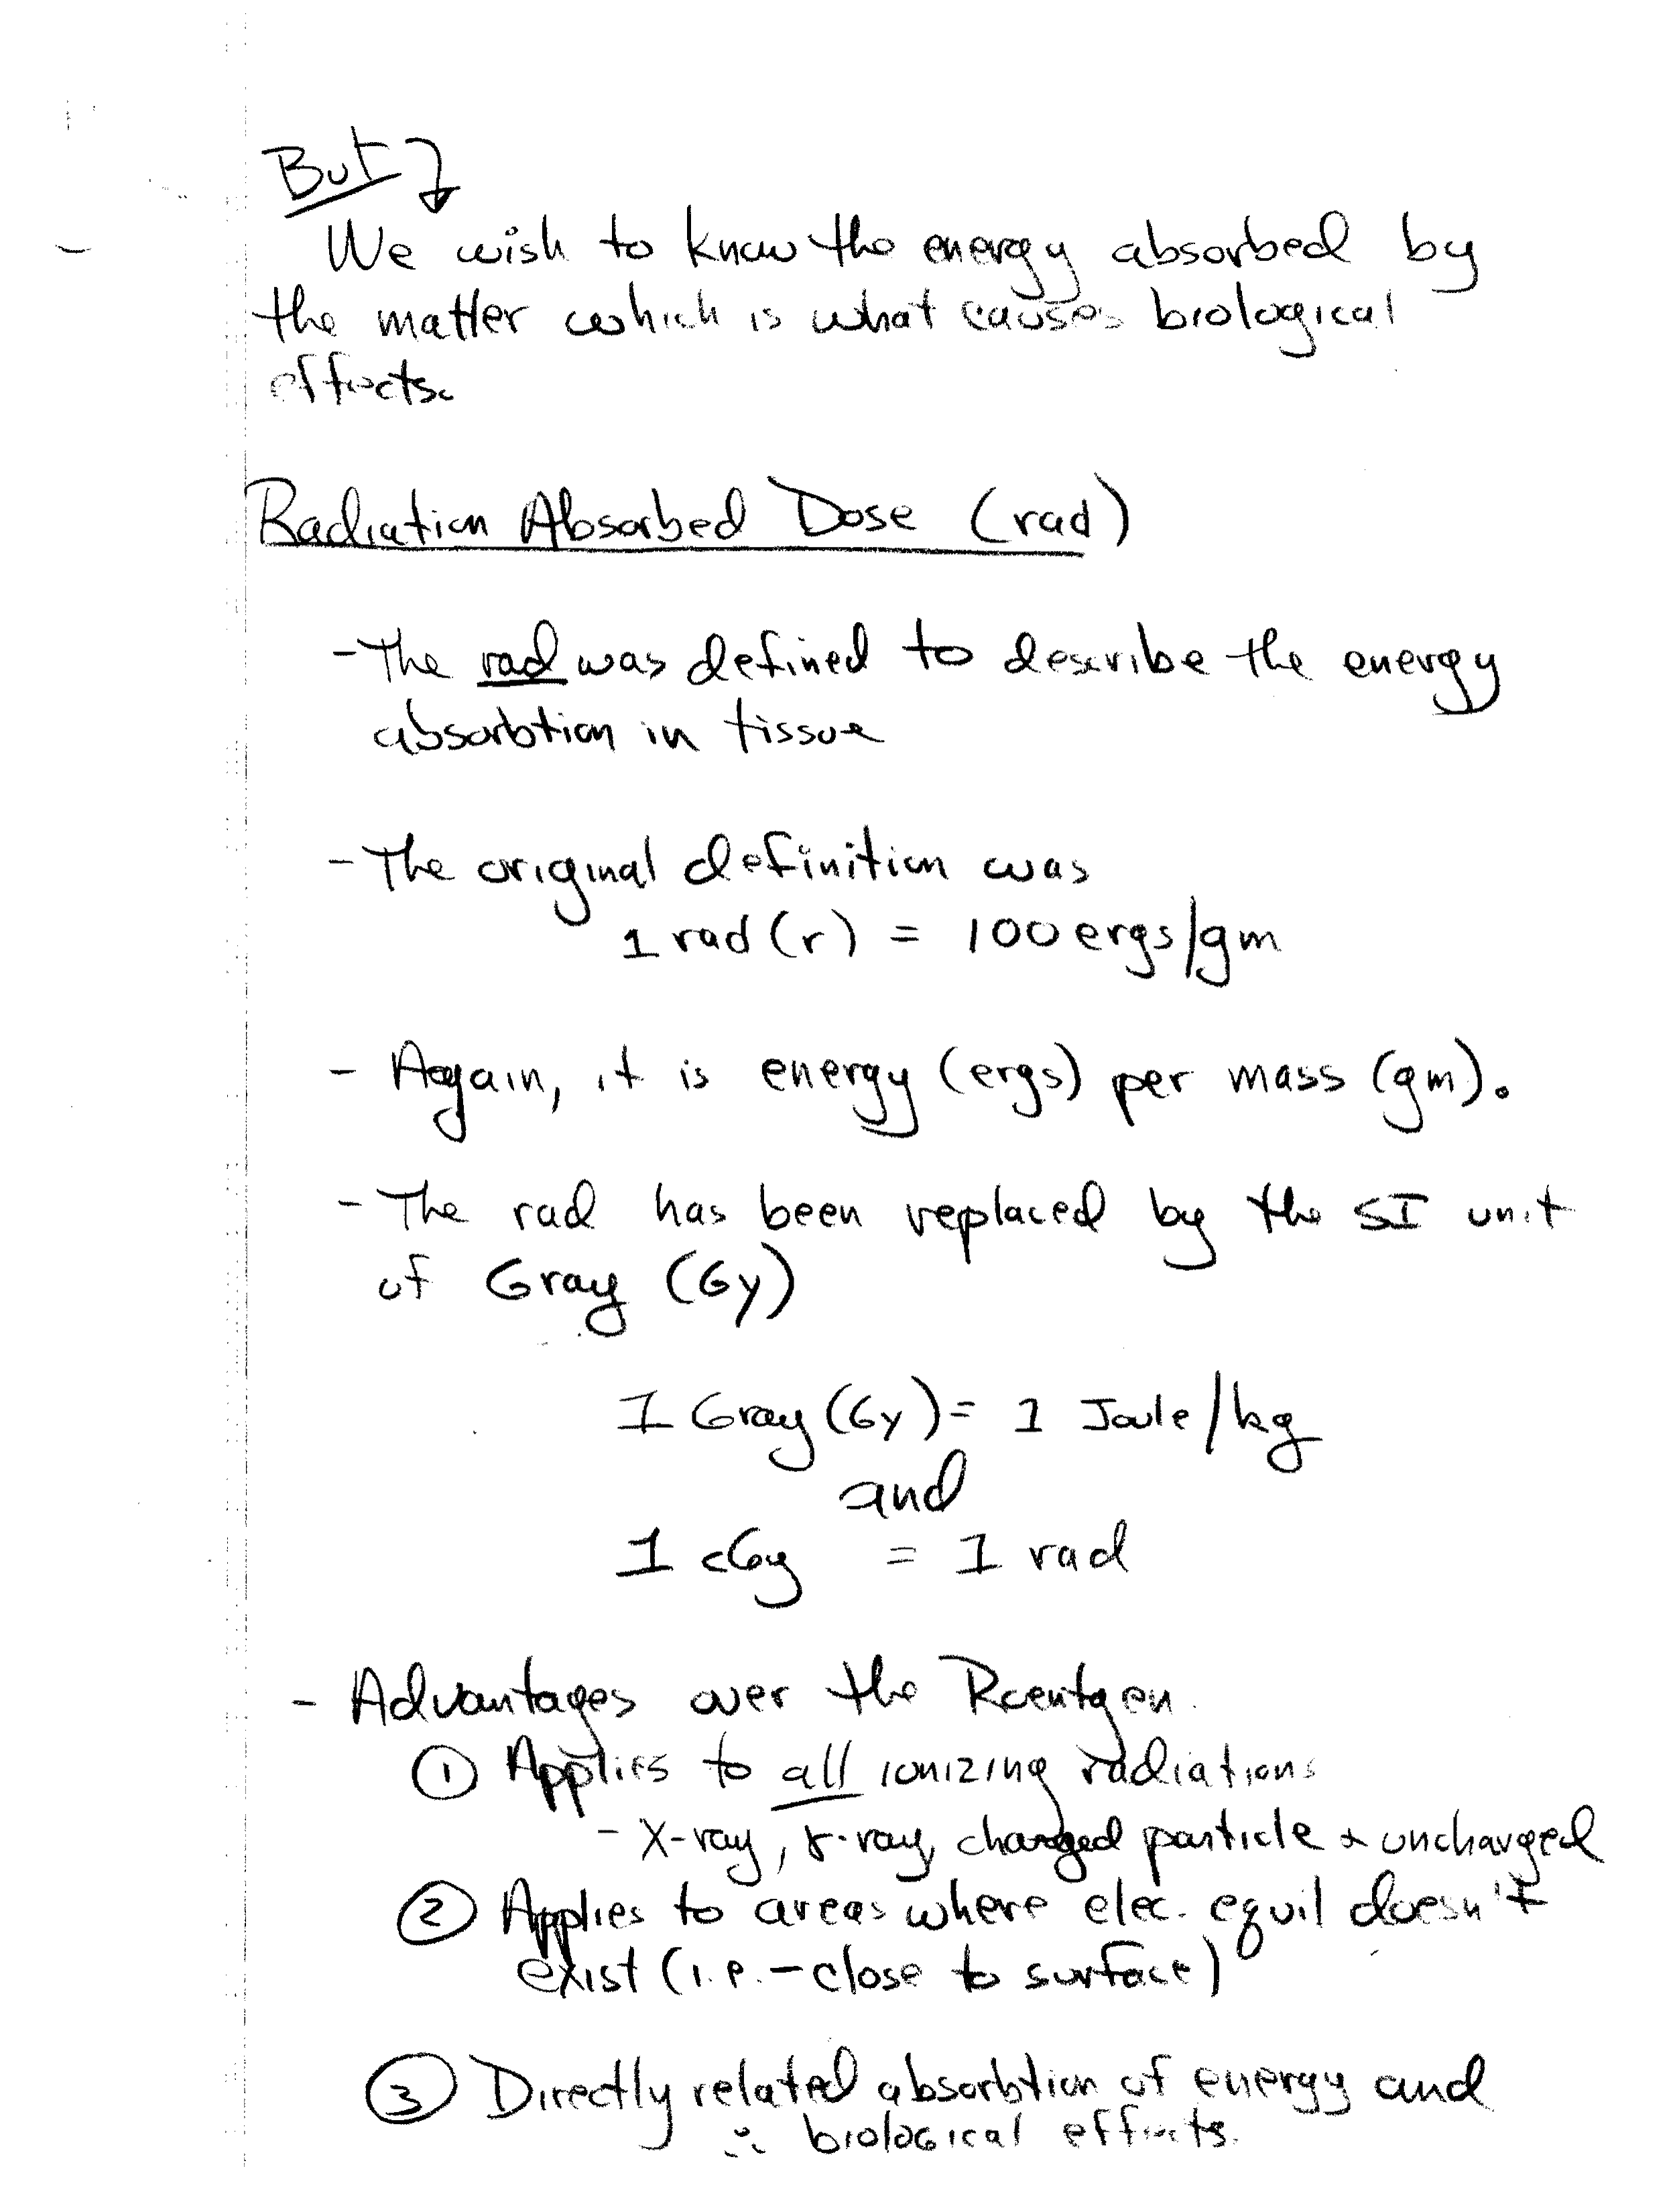 But ↴
We wish to know the energy absorbed by
the matter which is what causes biological
effects.
Radiation Absorbed Dose (rad)
- The rad was defined to describe the energy
absorbtion in tissue
- The original definition was
1 rad (r) = 100 ergs/gm
- Again, it is energy (ergs) per mass (gm).
- The rad has been replaced by the SI unit
of Gray (Gy)
1 Gray (Gy) = 1 Joule/kg
and
1 cGy = 1 rad
- Advantages over the Roentgen.
① Applies to all ionizing radiations
- X-ray, γ-ray, charged particle & uncharged
② Applies to areas where elec. equil doesn't
exist (i.e. - close to surface)
③ Directly related absorbtion of energy and
∴ biological effects.